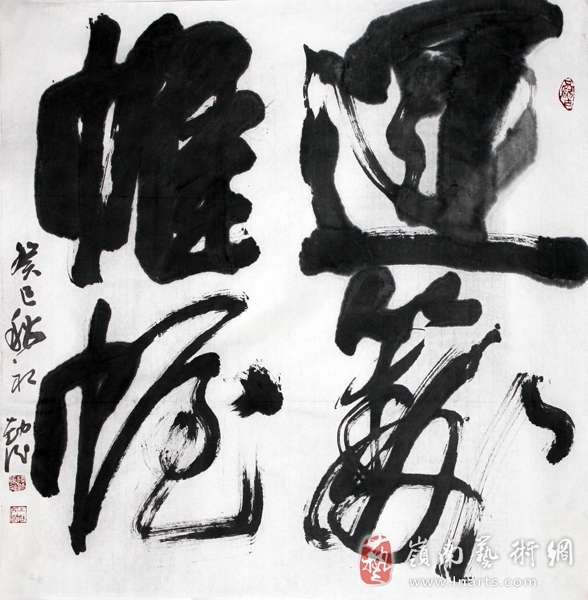 運籌
帷幄
癸巳秋初
嶺南藝術網
www.lnarts.com